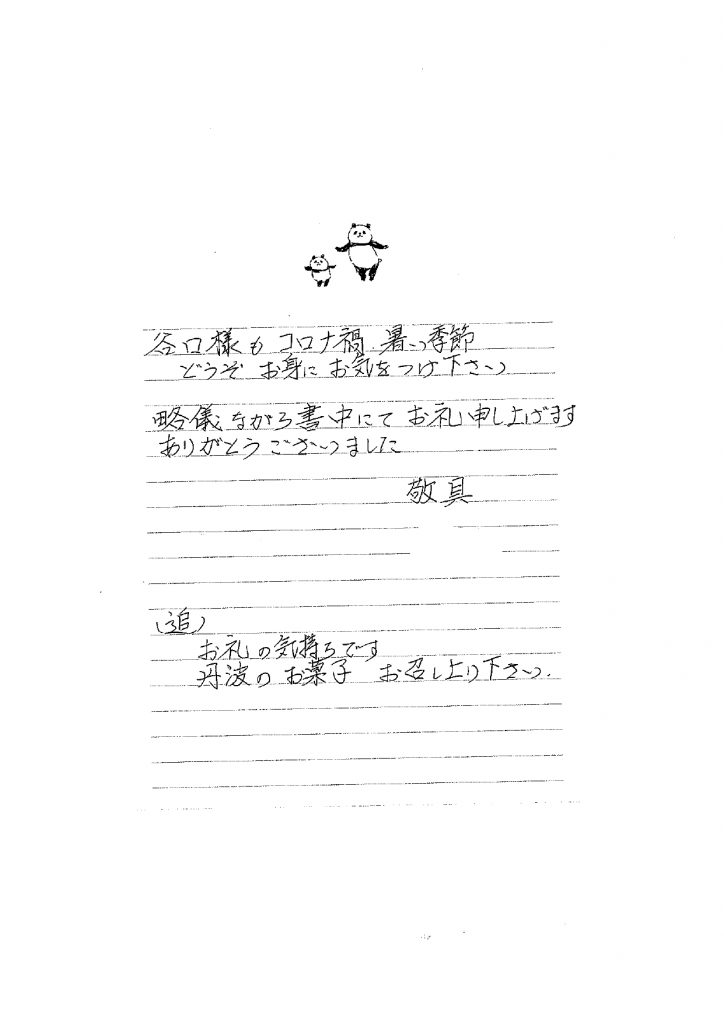 谷口様も コロナ禍、暑い季節
どうぞ お身に お気をつけ下さい
略儀ながら書中にて お礼申し上げます
ありがとうございました
敬具
(追)
お礼の気持ちです
丹波の お菓子 お召し上り下さい.